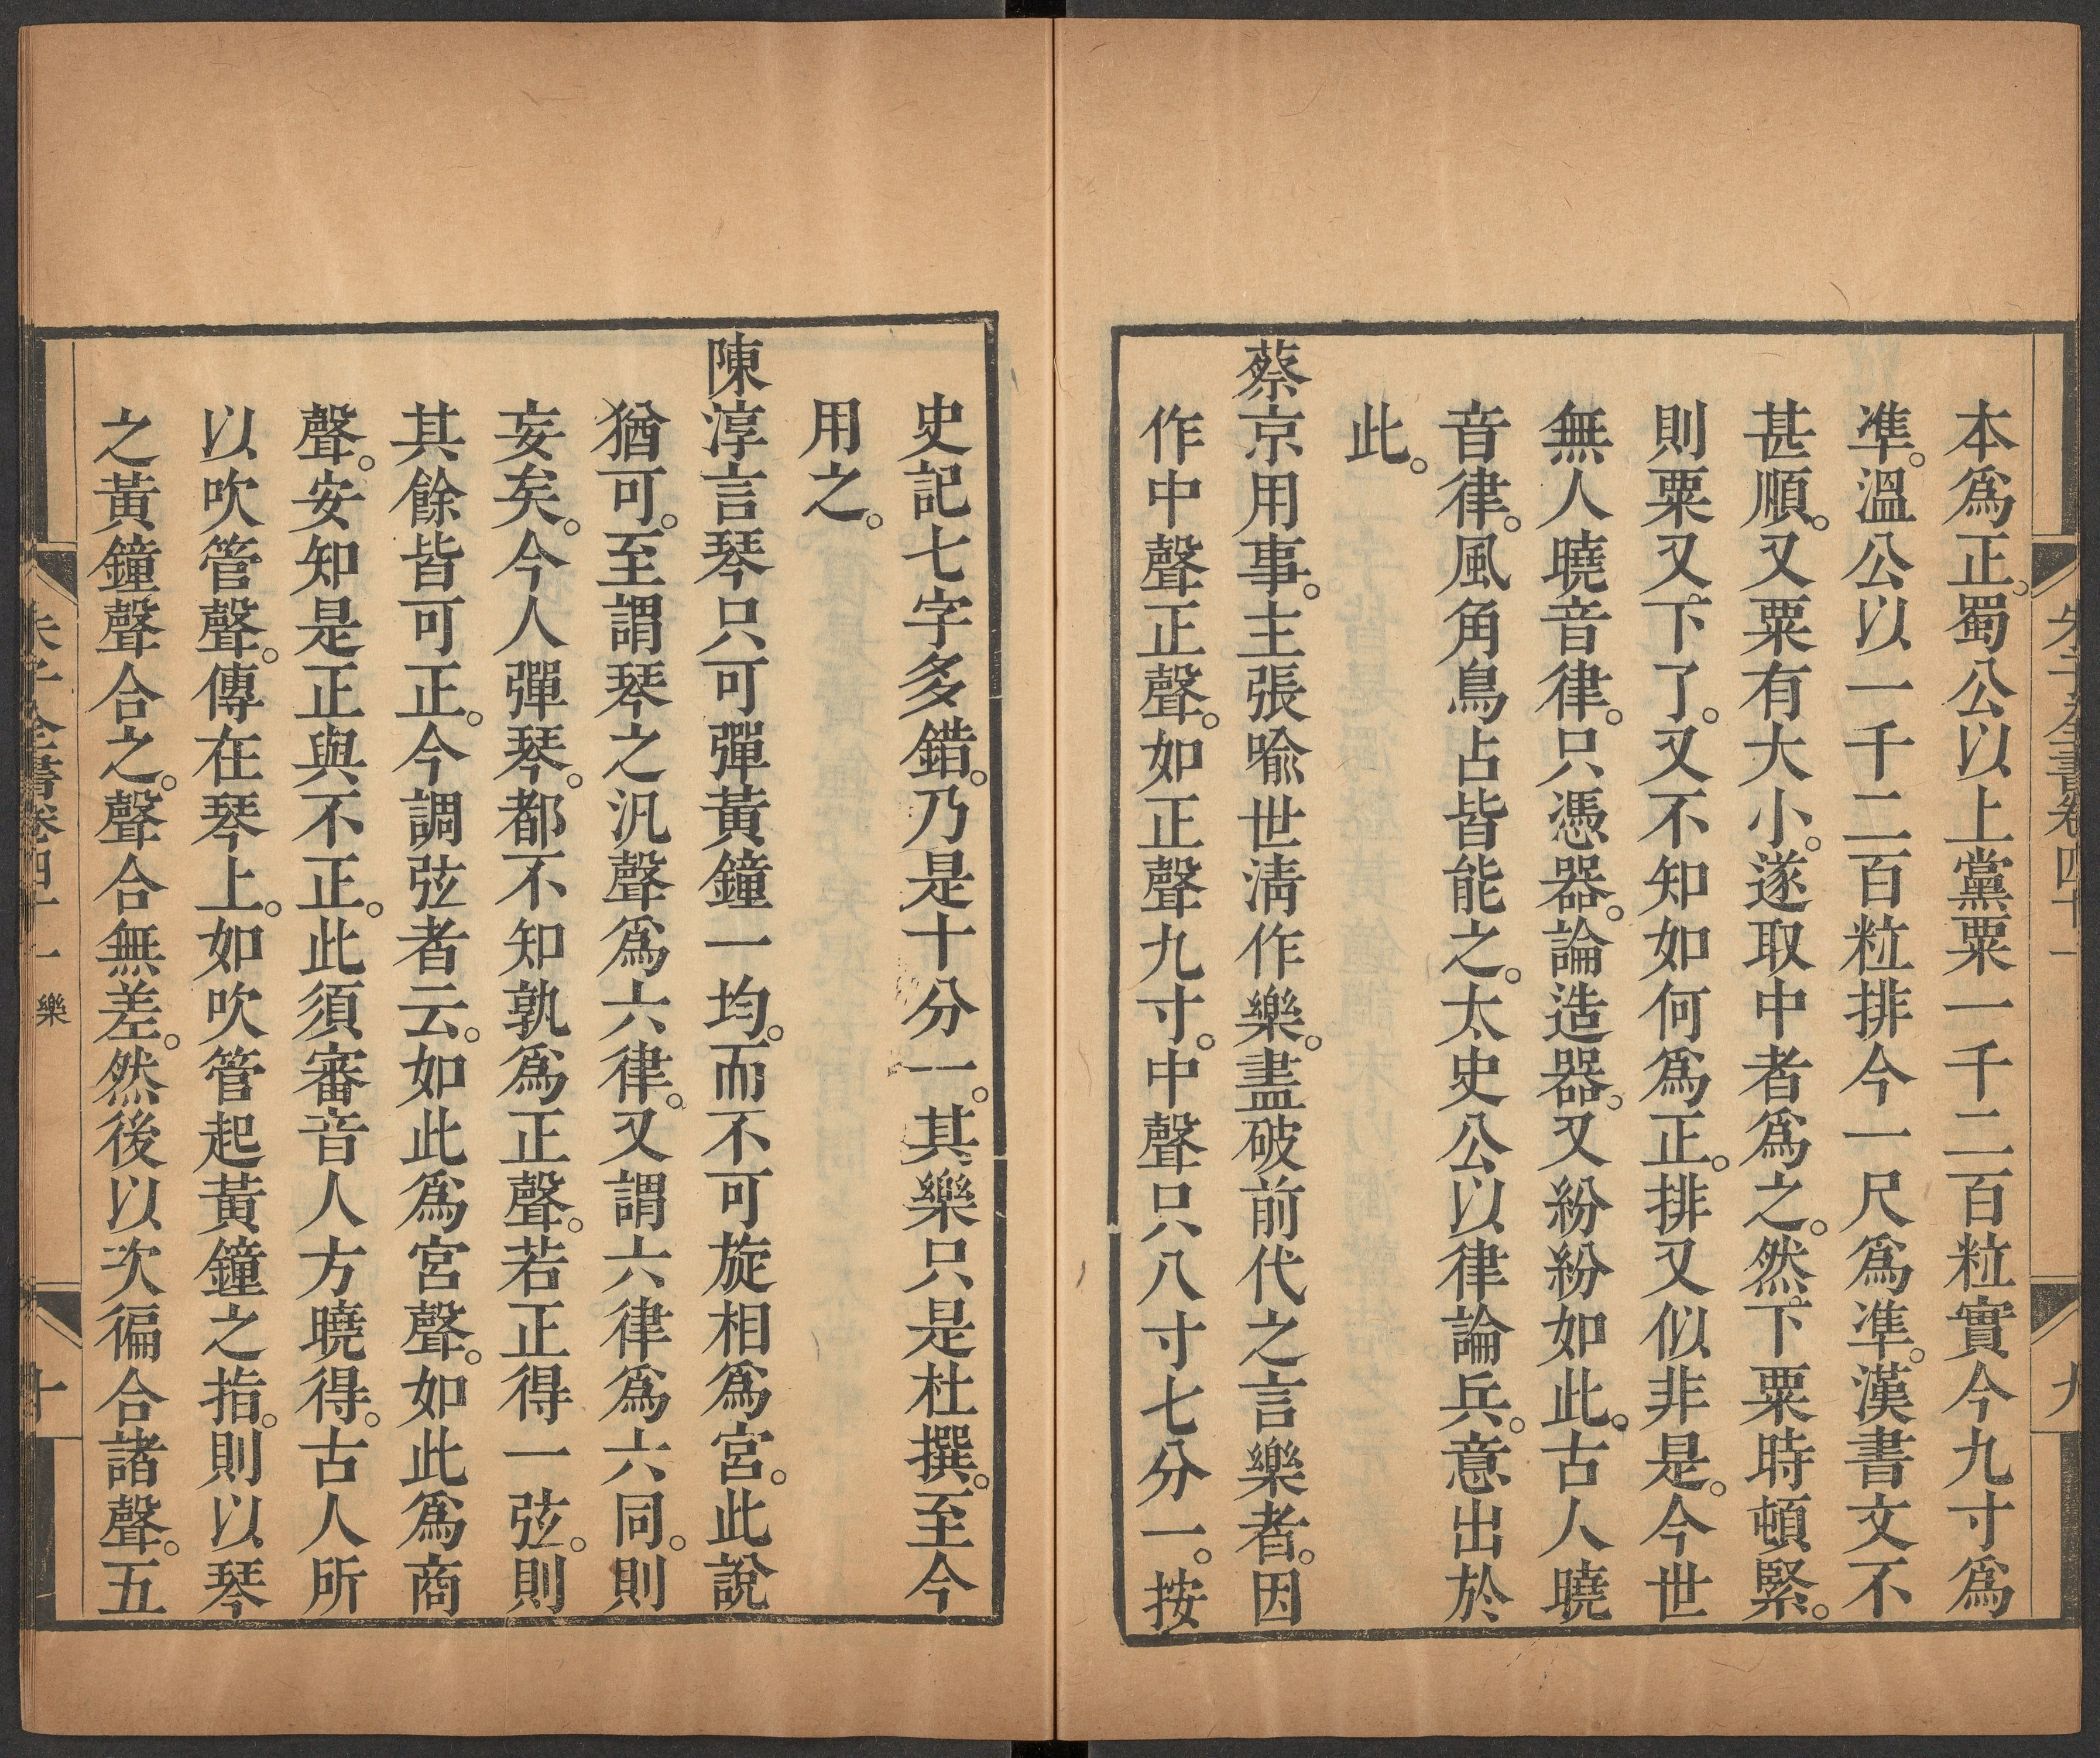 朱子全書卷四十一
九
本爲正。蜀公以上黨粟一千二百粒實今九寸爲
準。溫公以一千二百粒排今一尺爲準。漢書文不
甚順。又粟有大小。遂取中者爲之。然下粟時頓緊。
則粟又下了。又不知如何爲正。排又似非是。今世
無人曉音律。只憑器。論造器。又紛紛如此。古人曉
音律。風角鳥占皆能之。太史公以律論兵。意出於
此。
蔡京用事。主張喩世淸作樂。盡破前代之言樂者。因
作中聲正聲。如正聲九寸。中聲只八寸七分一。按
史記七字多錯。乃是十分一。其樂只是杜撰。至今
用之。
陳淳言琴只可彈黃鐘一均。而不可旋相爲宮。此說
猶可。至謂琴之汎聲爲六律。又謂六律爲六同。則
妄矣。今人彈琴。都不知孰爲正聲。若正得一弦。則
其餘皆可正。今調弦者云。如此爲宮聲。如此爲商
聲。安知是正與不正。此須審音人方曉得。古人所
以吹管聲。傳在琴上。如吹管起黃鐘之指。則以琴
之黃鐘聲合之。聲合無差。然後以次徧合諸聲。五
朱子全書卷四十一 樂
十